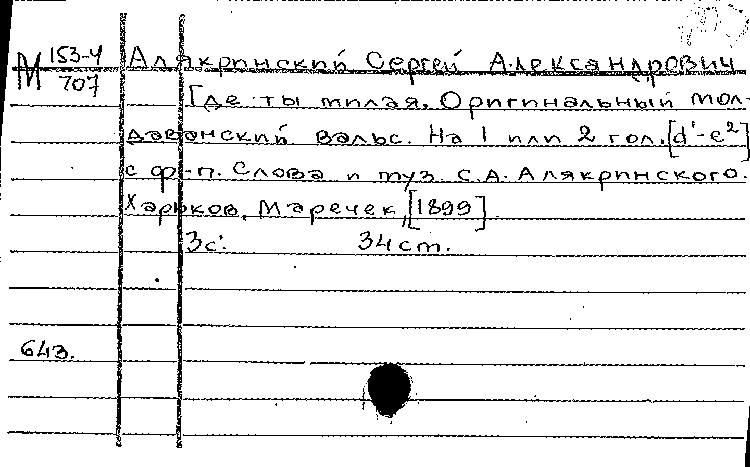 М 153-4/707
Алякринский Сергей Александрович
Где ты милая. Оригинальный мол-
даванский вальс. На 1 или 2 гол. [d¹-e²]
с ф-п. Слова и муз. С.А. Алякринского.
Харьков, Маречек, [1899].
3с. 34 cm.
643.